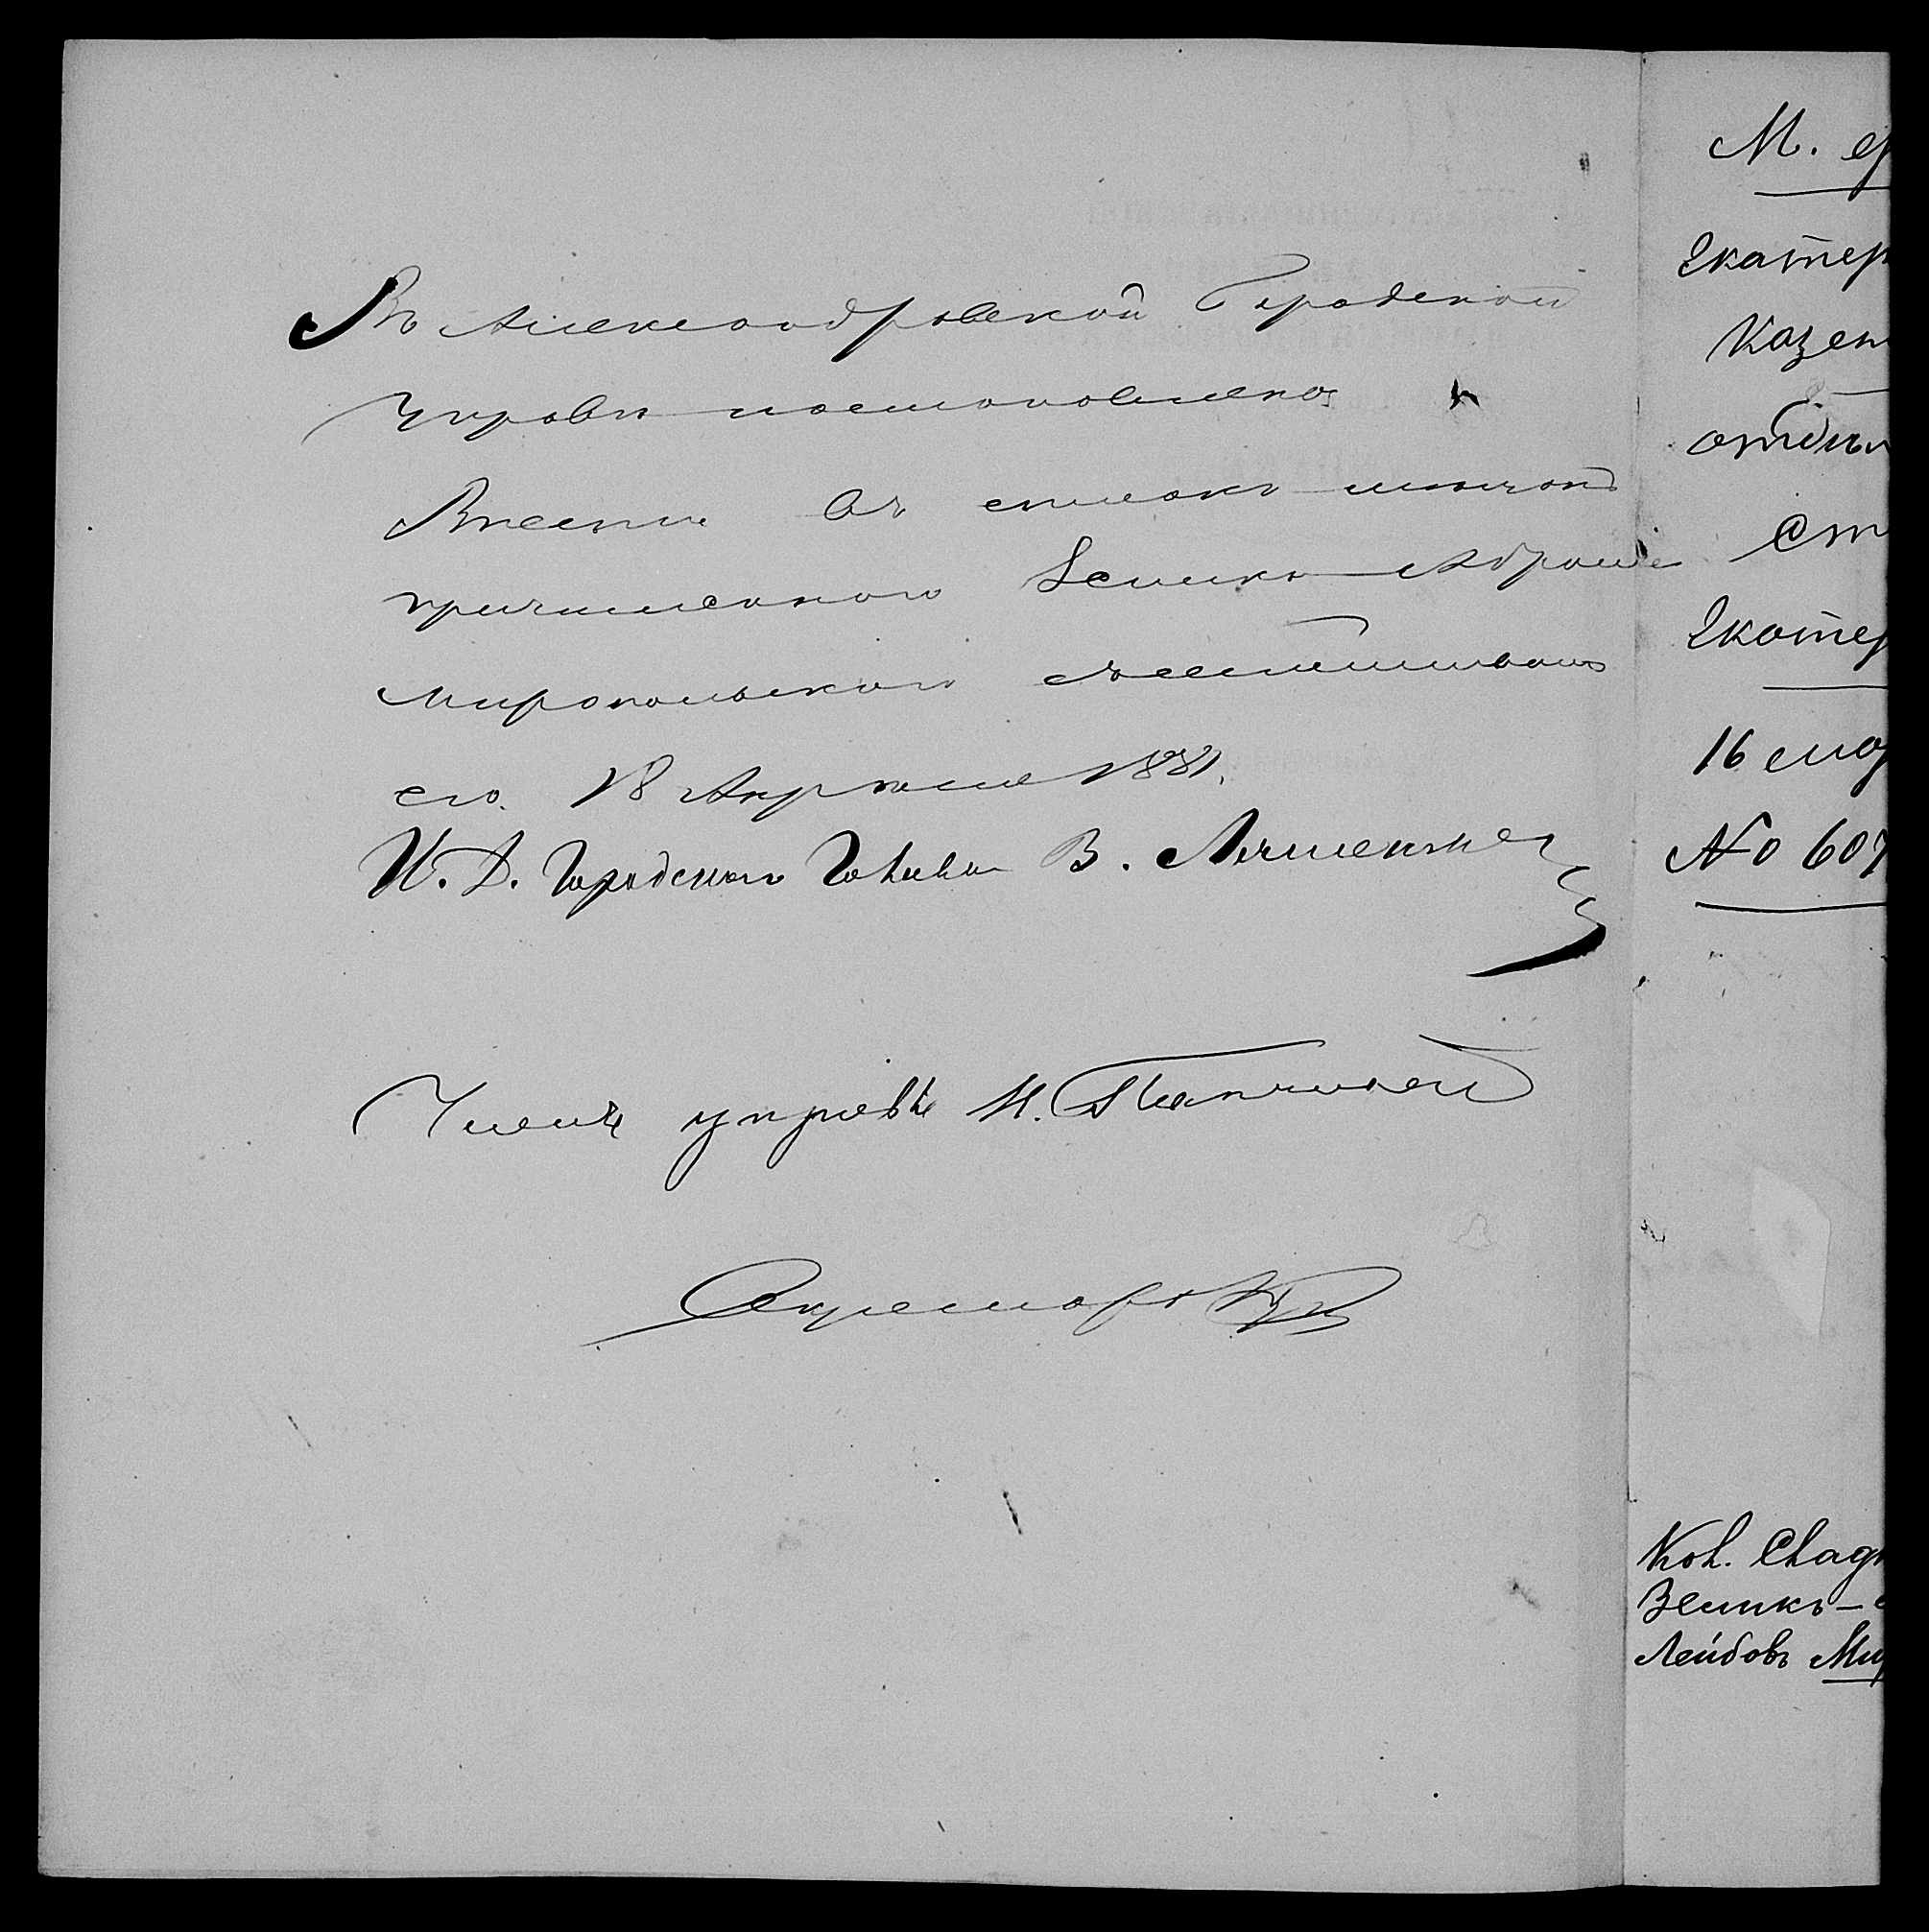 Въ Александровской Городской
Управѣ постановлено:
Внести въ списокъ мѣщанъ
причисленнаго Зелика Абрама
Миропольскаго съ семействомъ
его. 18 Апрѣля 1881.
И. Д. Городскаго Головы В.
Членъ управы И.
Секретарь
М. ф
Екатер
Казен
отдѣл
Ст
Екатер
16 мар
№ 607
Коп.
Зеликъ-
Лейбовъ Мир